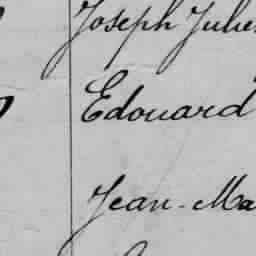 Joseph Jule
Edouard
Jean-Ma